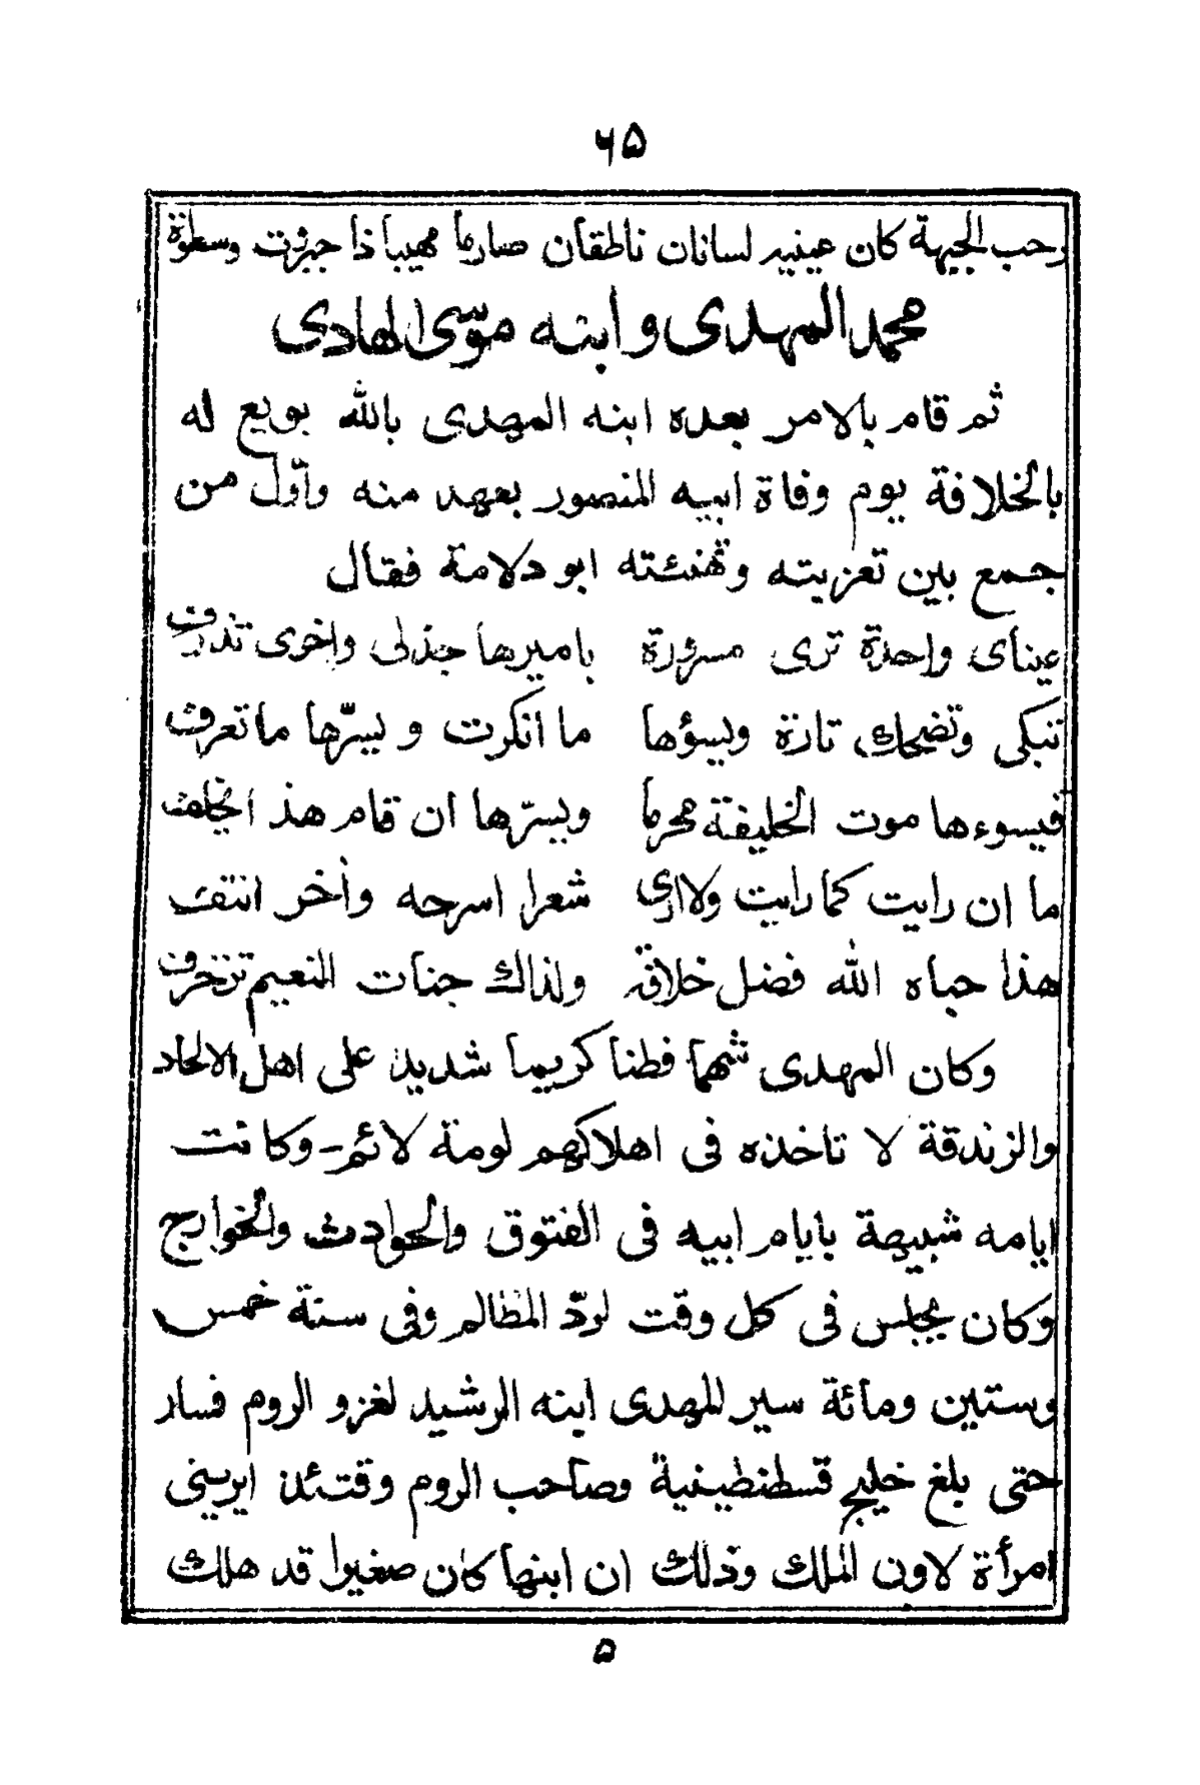 ۶۵
رحب الجبهة كان عينيه لسانان ناطقان صارما مهيبا ذا جبروت وسطوة
محمد المهدى وابنه موسى الهادى
ثم قام بالامر بعده ابنه المهدى بالله بويع له
بالخلافة يوم وفاة ابيه المنصور بعهد منه واوّل من
جمع بين تعزيته وتهنئته ابو دلامة فقال
عيناى واحدة ترى مسرورة باميرها جذلى واخرى تذرف
تبكى وتضحك تارة ويسوؤها ما انكرت ويسرّها ما تعرف
فيسوءها موت الخليفة محرما ويسرّها ان قام هذ الخلف
ما ان رايت كما رايت ولا ارى شعرا اسرحه وأخر انتف
هذا حباه الله فضل خلافة ولذاك جنات النعيم تزخرف
وكان المهدى شهما فطنا كريما شديد على اهل الالحاد
والزندقة لا تاخذه فى اهلاكهم لومة لائم - وكانت
ايامه شبيهة بايام ابيه فى الفتوق والحوادث والخوارج
وكان يجلس فى كل وقت لردّ المظالم وفى سنة خمس
وستين ومائة سير المهدى ابنه الرشيد لغزو الروم فسار
حتى بلغ خليج قسطنطينية وصاحب الروم وقتئذ ايرينى
امرأة لاون الملك وذلك ان ابنها كان صغيرا قد هلك
۵